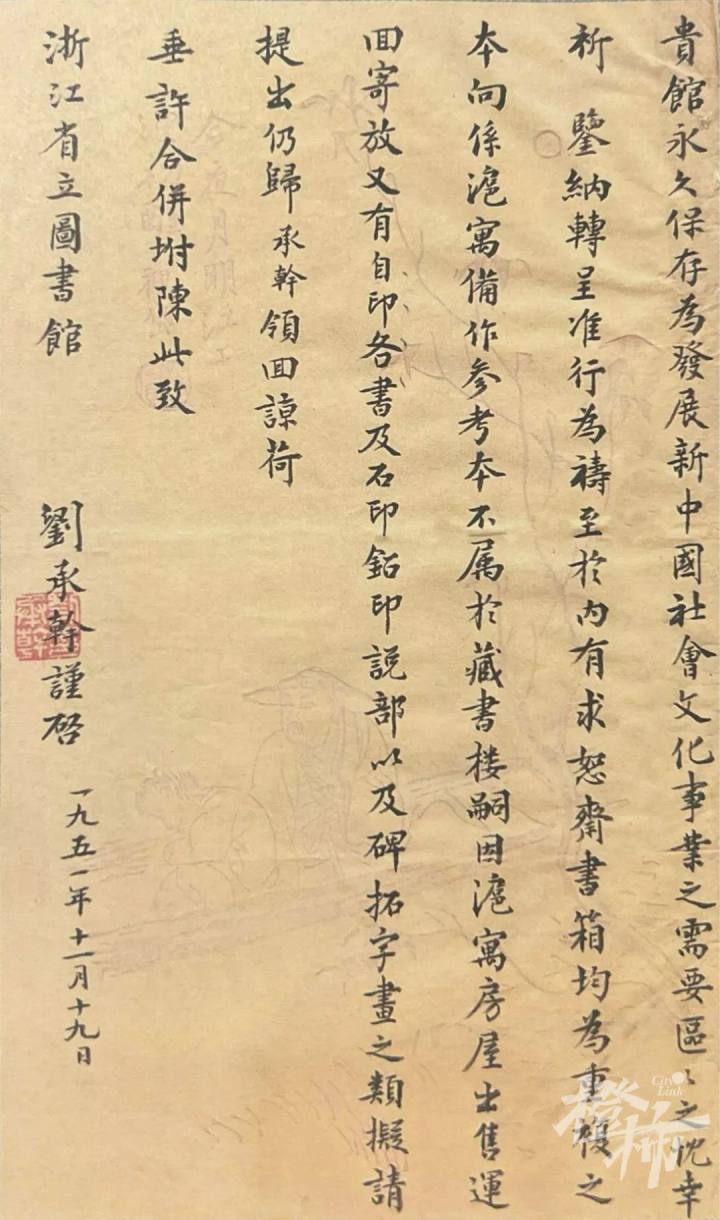 貴館永久保存為發展新中國社會文化事業之需要區〻之忱幸
祈 鑒納轉呈准行為禱至於內有求恕齋書箱均為重複之
本向係滬寓備作參考本不属於藏書楼嗣因滬寓房屋出售運
回寄放又有自印各書及石印鉛印説部以及碑拓字畫之類擬請
提出仍歸承幹領回諒荷
垂許合併坿陳此致
浙江省立圖書館
劉承幹謹啓
一九五一年十一月十九日
City Link
橙柿